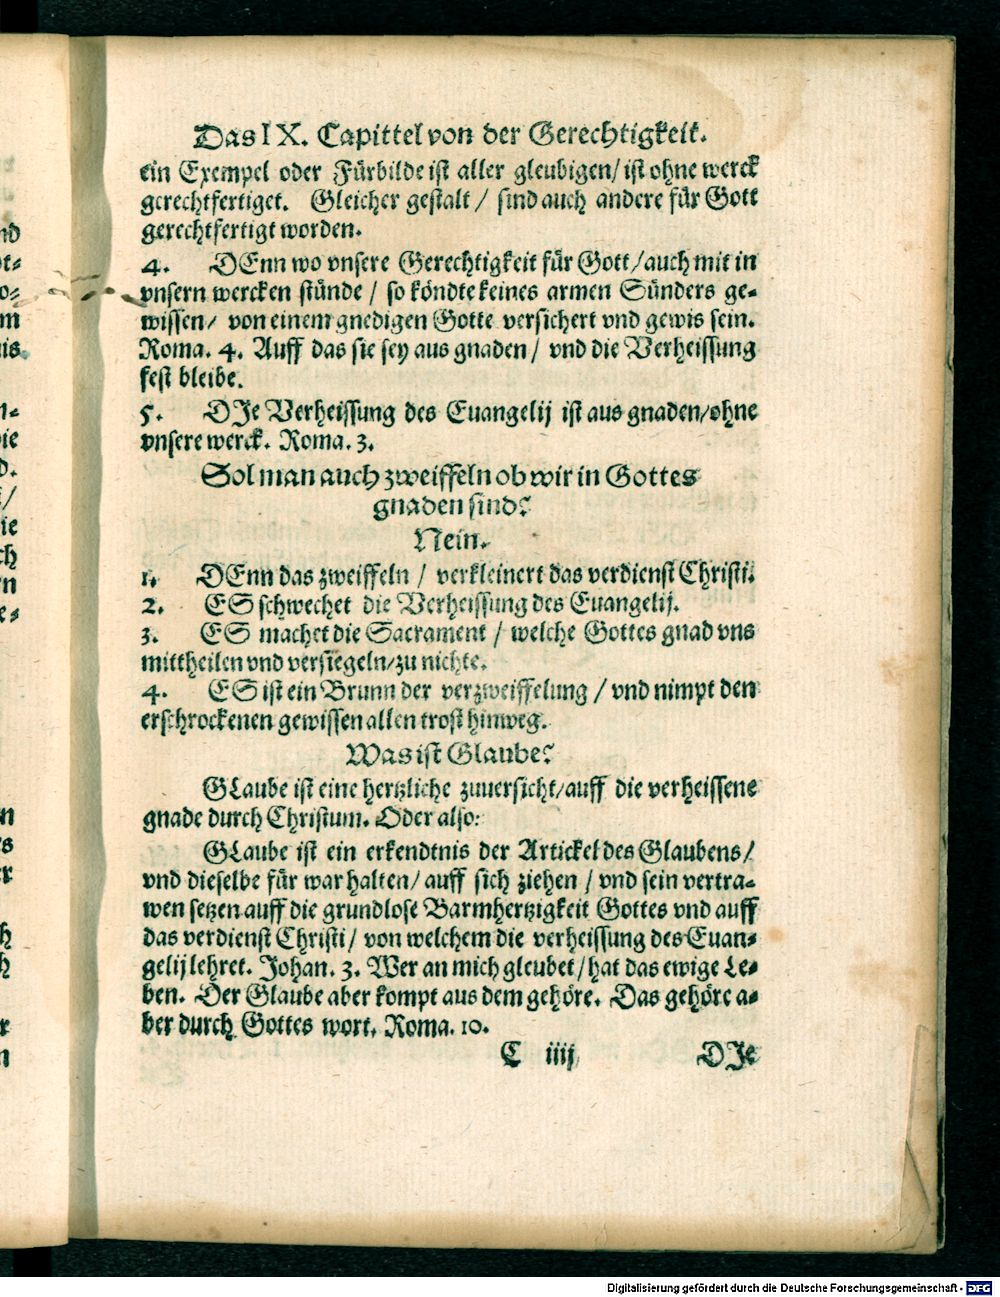 Das IX. Capittel von der Gerechtigkeit.
ein Exempel oder Fürbilde ist aller gleubigen/ ist ohne werck
gerechtfertiget. Gleicher gestalt / sind auch andere für Gott
gerechtfertigt worden.
4. DEnn wo vnsere Gerechtigkeit für Gott/ auch mit in
vnsern wercken stünde / so köndte keines armen Sünders ge-
wissen/ von einem gnedigen Gotte versichert vnd gewis sein.
Roma. 4. Auff das sie sey aus gnaden / vnd die Verheissung
fest bleibe.
5. DIe Verheissung des Euangelij ist aus gnaden/ ohne
vnsere werck. Roma. 3.
Sol man auch zweiffeln ob wir in Gottes
gnaden sind?
Nein.
1. DEnn das zweiffeln / verkleinert das verdienst Christi.
2. ES schwechet die Verheissung des Euangelij.
3. ES machet die Sacrament / welche Gottes gnad vns
mittheilen vnd versiegeln/ zu nichte.
4. ES ist ein Brunn der verzweiffelung / vnd nimpt den
erschrockenen gewissen allen trost hinweg.
Was ist Glaube?
GLaube ist eine hertzliche zuuersicht/ auff die verheissene
gnade durch Christum. Oder also:
GLaube ist ein erkendtnis der Artickel des Glaubens/
vnd dieselbe für war halten/ auff sich ziehen / vnd sein vertra-
wen setzen auff die grundlose Barmhertzigkeit Gottes vnd auff
das verdienst Christi/ von welchem die verheissung des Euan-
gelij lehret. Johan. 3. Wer an mich gleubet/ hat das ewige Le-
ben. Der Glaube aber kompt aus dem gehöre. Das gehöre a-
ber durch Gottes wort. Roma. 10.
C iiij DIe
Digitalisierung gefördert durch die Deutsche Forschungsgemeinschaft - DFG